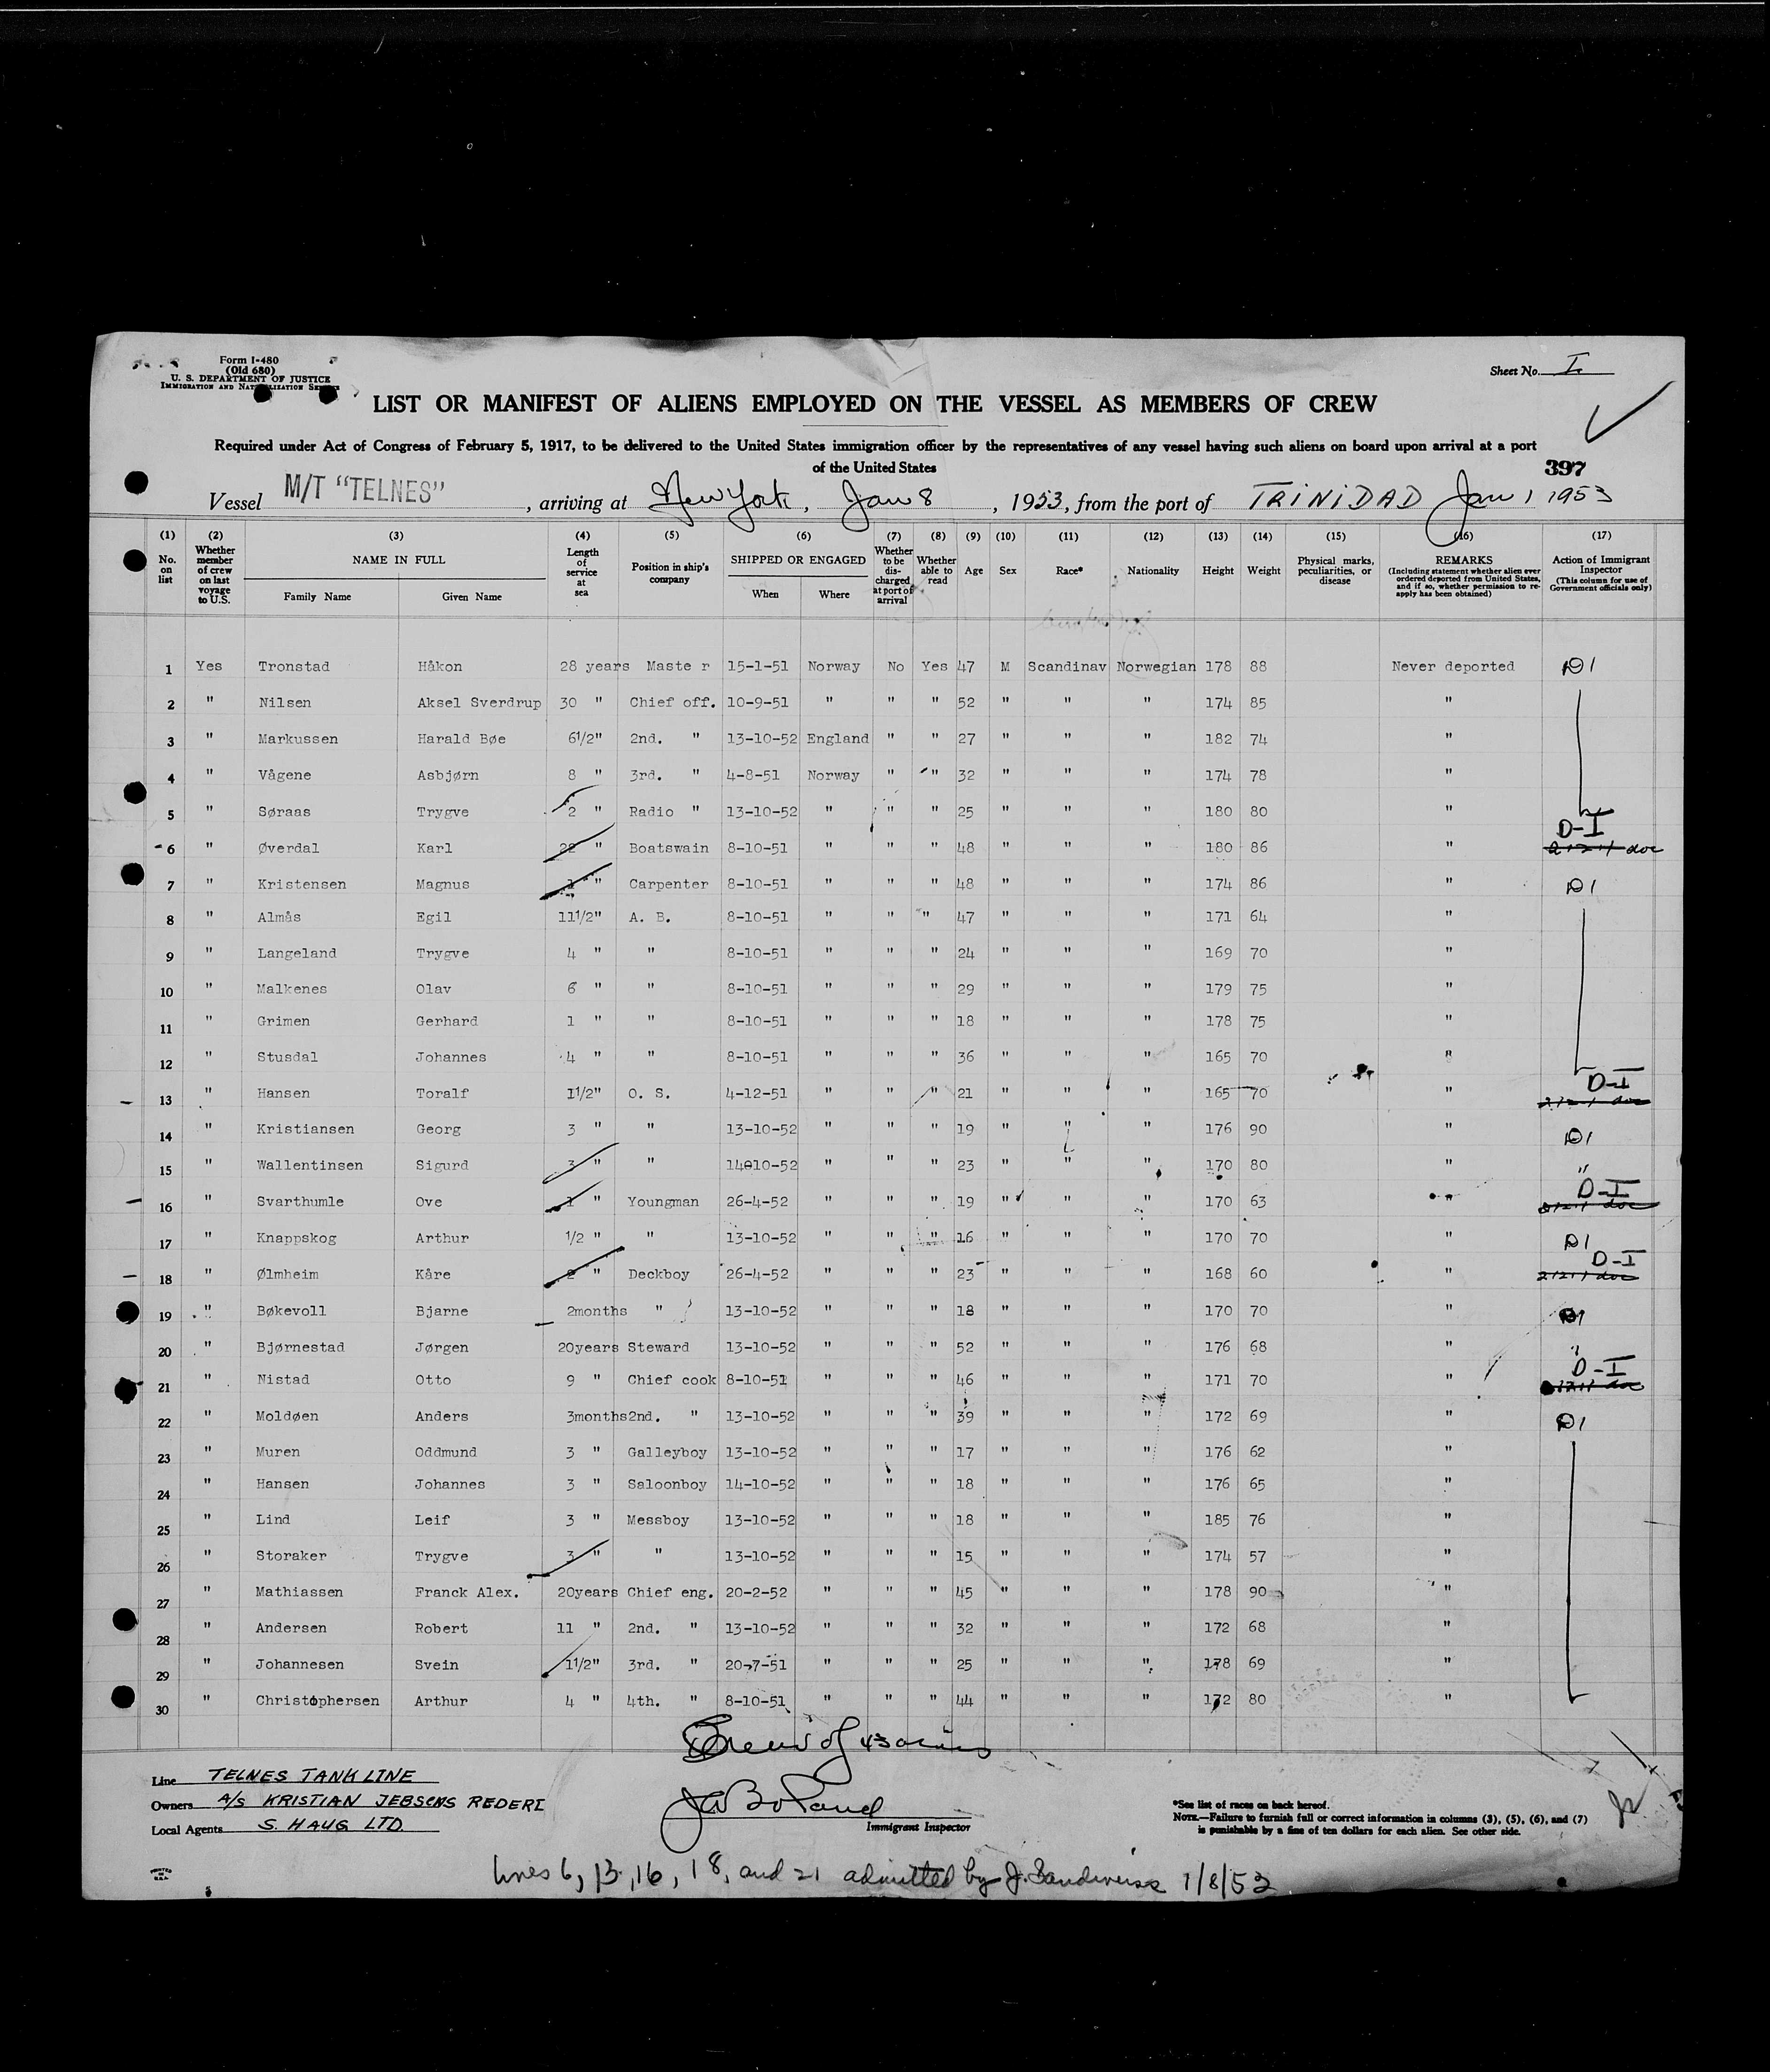 Form I-480
(Old 680)
U. S. DEPARTMENT OF JUSTICE
IMMIGRATION AND NATURALIZATION SERVICE
Sheet No. I.
LIST OR MANIFEST OF ALIENS EMPLOYED ON THE VESSEL AS MEMBERS OF CREW
Required under Act of Congress of February 5, 1917, to be delivered to the United States immigration officer by the representatives of any vessel having such aliens on board upon arrival at a port
of the United States
397
Vessel M/T "TELNES", arriving at New York, Jan 8, 1953, from the port of TRINIDAD Jan 1 1953
(1) No. on list (2) Whether member of crew on last voyage to U.S. (3) NAME IN FULL Family Name Given Name (4) Length of service at sea (5) Position in ship's company (6) SHIPPED OR ENGAGED When Where (7) Whether to be discharged at port of arrival (8) Whether able to read (9) Age (10) Sex (11) Race* (12) Nationality (13) Height (14) Weight (15) Physical marks, peculiarities, or disease (16) REMARKS (Including statement whether alien ever ordered deported from United States, and if so, whether permission to re-apply has been obtained) (17) Action of Immigrant Inspector (This column for use of Government officials only)
1 Yes Tronstad Håkon 28 years Maste r 15-1-51 Norway No Yes 47 M Scandinav Norwegian 178 88 Never deported D1
2 " Nilsen Aksel Sverdrup 30 " Chief off. 10-9-51 " " " 52 " " " 174 85 "
3 " Markussen Harald Bøe 6 1/2" 2nd. " 13-10-52 England " " 27 " " " 182 74 "
4 " Vågene Asbjørn 8 " 3rd. " 4-8-51 Norway " " 32 " " " 174 78 "
5 " Søraas Trygve 2 " Radio " 13-10-52 " " " 25 " " " 180 80 "
6 " Øverdal Karl 22 " Boatswain 8-10-51 " " " 48 " " " 180 86 " D-I
7 " Kristensen Magnus 1 " Carpenter 8-10-51 " " " 48 " " " 174 86 " D1
8 " Almås Egil 11 1/2" A. B. 8-10-51 " " " 47 " " " 171 64 "
9 " Langeland Trygve 4 " " 8-10-51 " " " 24 " " " 169 70 "
10 " Malkenes Olav 6 " " 8-10-51 " " " 29 " " " 179 75 "
11 " Grimen Gerhard 1 " " 8-10-51 " " " 18 " " " 178 75 "
12 " Stusdal Johannes 4 " " 8-10-51 " " " 36 " " " 165 70 "
13 " Hansen Toralf 1 1/2" O. S. 4-12-51 " " " 21 " " " 165 70 " D-I
14 " Kristiansen Georg 3 " " 13-10-52 " " " 19 " " " 176 90 " D1
15 " Wallentinsen Sigurd 3 " " 14010-52 " " " 23 " " " 170 80 " "
16 " Svarthumle Ove 1 " Youngman 26-4-52 " " " 19 " " " 170 63 " D-I
17 " Knappskog Arthur 1/2 " " 13-10-52 " " " 16 " " " 170 70 " D1
18 " Ølmheim Kåre 2 " Deckboy 26-4-52 " " " 23 " " " 168 60 " D-I
19 " Bøkevoll Bjarne 2months " 13-10-52 " " " 18 " " " 170 70 " D1
20 " Bjørnestad Jørgen 20years Steward 13-10-52 " " " 52 " " " 176 68 " "
21 " Nistad Otto 9 " Chief cook 8-10-51 " " " 46 " " " 171 70 " D-I
22 " Moldøen Anders 3months 2nd. " 13-10-52 " " " 39 " " " 172 69 " D1
23 " Muren Oddmund 3 " Galleyboy 13-10-52 " " " 17 " " " 176 62 "
24 " Hansen Johannes 3 " Saloonboy 14-10-52 " " " 18 " " " 176 65 "
25 " Lind Leif 3 " Messboy 13-10-52 " " " 18 " " " 185 76 "
26 " Storaker Trygve 3 " " 13-10-52 " " " 15 " " " 174 57 "
27 " Mathiassen Franck Alex. 20years Chief eng. 20-2-52 " " " 45 " " " 178 90 "
28 " Andersen Robert 11 " 2nd. " 13-10-52 " " " 32 " " " 172 68 "
29 " Johannesen Svein 1 1/2" 3rd. " 20-7-51 " " " 25 " " " 178 69 "
30 " Christophersen Arthur 4 " 4th. " 8-10-51 " " " 44 " " " 172 80 "
Line TELNES TANK LINE
Owners A/S KRISTIAN JEBSENS REDERI
Local Agents S. HAUG LTD.
Immigrant Inspector
*See list of races on back hereof.
NOTE.—Failure to furnish full or correct information in columns (3), (5), (6), and (7)
is punishable by a fine of ten dollars for each alien. See other side.
PRINTED IN U.S.A.
lines 6, 13, 16, 18, and 21 admitted by J. Sandweiss 1/8/53